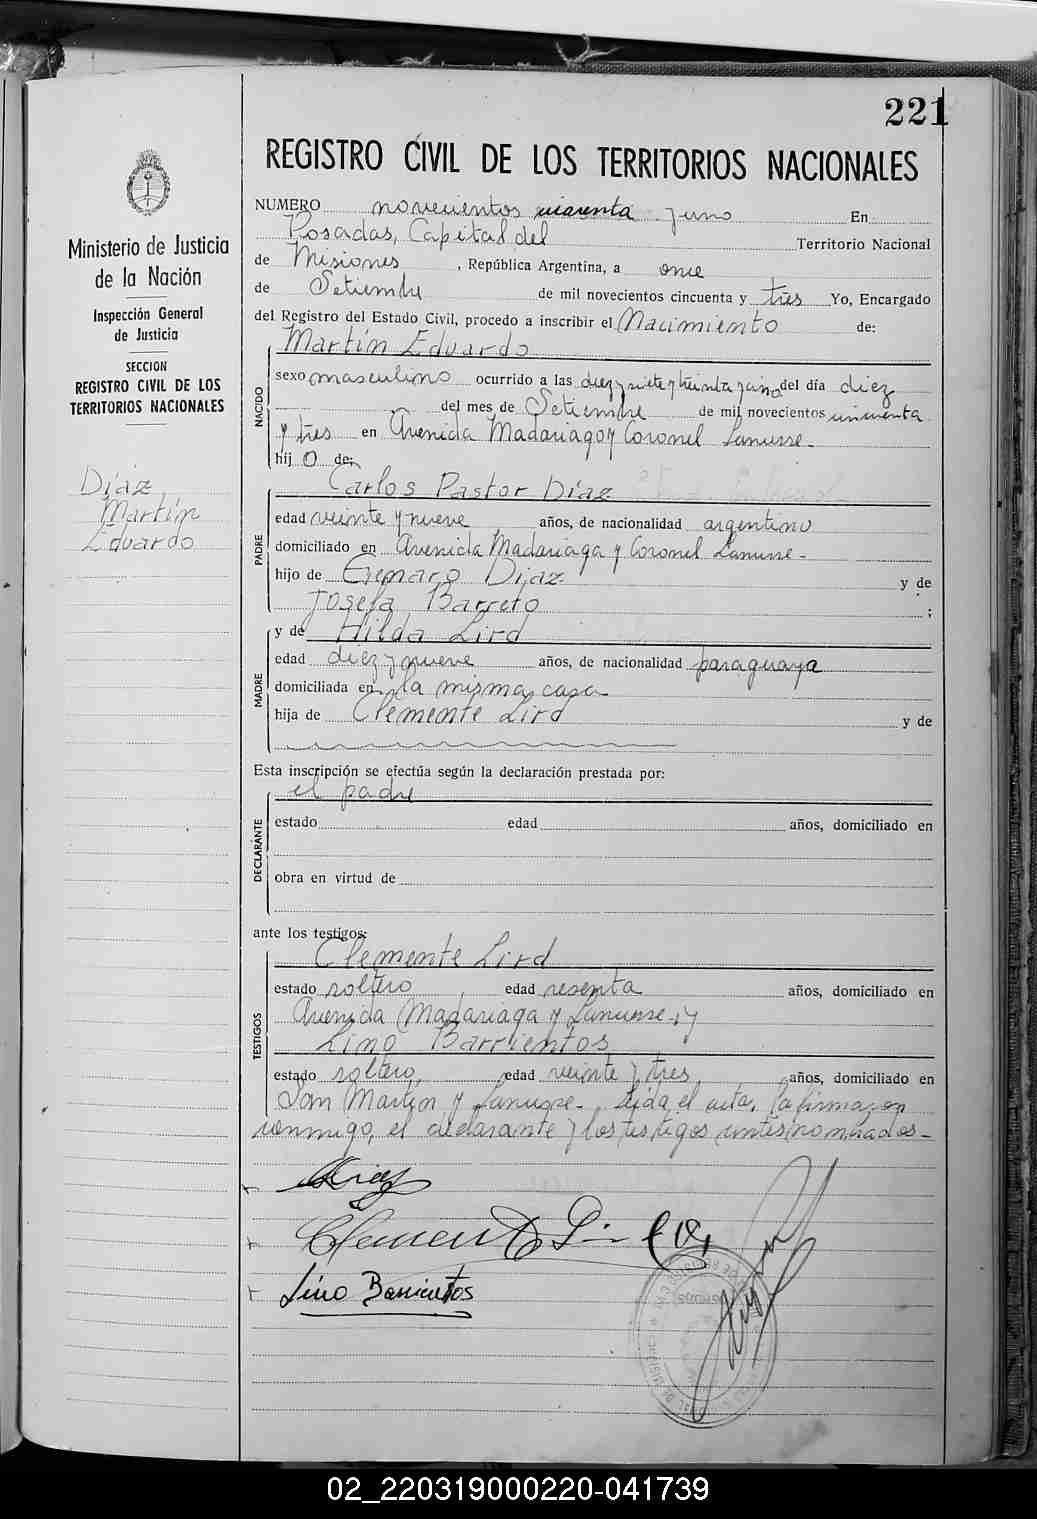 221
REGISTRO CIVIL DE LOS TERRITORIOS NACIONALES
Ministerio de Justicia
de la Nación
Inspección General
de Justicia
SECCION
REGISTRO CIVIL DE LOS
TERRITORIOS NACIONALES
Díaz
Martín
Eduardo
NUMERO novecientos cuarenta y uno En
Posadas, Capital del Territorio Nacional
de Misiones, República Argentina, a once
de Setiembre de mil novecientos cincuenta y tres Yo, Encargado
del Registro del Estado Civil, procedo a inscribir el Nacimiento de:
Martín Eduardo
NACIDO
sexo masculino ocurrido a las diez y siete y treinta del día diez
del mes de Setiembre de mil novecientos cincuenta
y tres en Avenida Madariaga y Coronel Lanusse-
hij o de:
Carlos Pastor Díaz
PADRE
edad veinte y nueve años, de nacionalidad argentino
domiciliado en Avenida Madariaga y Coronel Lanusse-
hijo de Genaro Diaz y de
Josefa Barreto ;
y de Hilda Lird
MADRE
edad diez y nueve años, de nacionalidad paraguaya
domiciliada en la misma casa
hija de Clemente Lird y de
Esta inscripción se efectúa según la declaración prestada por:
el padre
DECLARANTE
estado edad años, domiciliado en
obra en virtud de
ante los testigos:
Clemente Lird
TESTIGOS
estado soltero edad sesenta años, domiciliado en
Avenida Madariaga y Lanusse-; y
Lino Barrientos
estado soltero, edad veinte y tres años, domiciliado en
San Martín y Lanusse- Leida el acta, la firmaron
conmigo, el declarante y los testigos nombrados-
Lino Barrientos
02_220319000220-041739